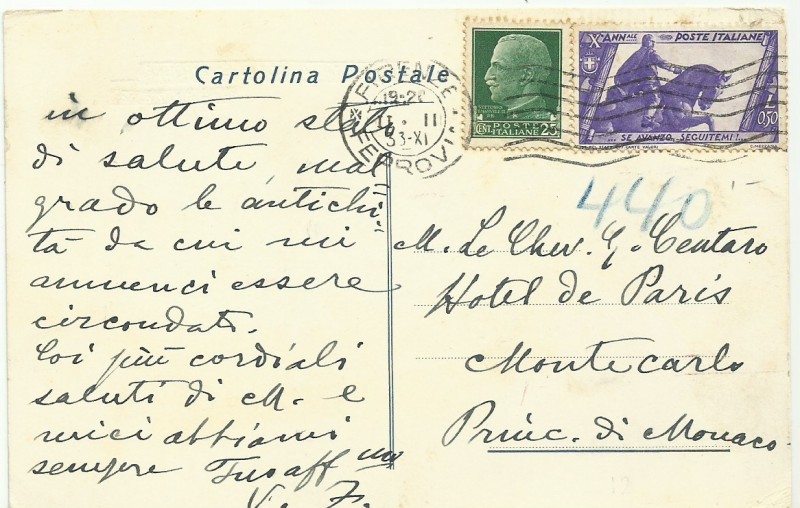 Cartolina Postale
in ottimo stato
di salute, mal
grado le antichi
tà da cui mi
annunci essere
circondato.
Coi più cordiali
saluti di M. e
miei abbiami
sempre Tuo aff mo
FIRENZE
19-20
II
33-XI
FERROVIA
VITTORIO
EMANUELE
III
CENT POSTE 25
ITALIANE
X° ANN.ALE POSTE ITALIANE
L
0,50
... SE AVANZO, SEGUITEMI!...
440
M. Le Chev. G. Centaro
Hotel de Paris
Montecarlo
Princ. di Monaco